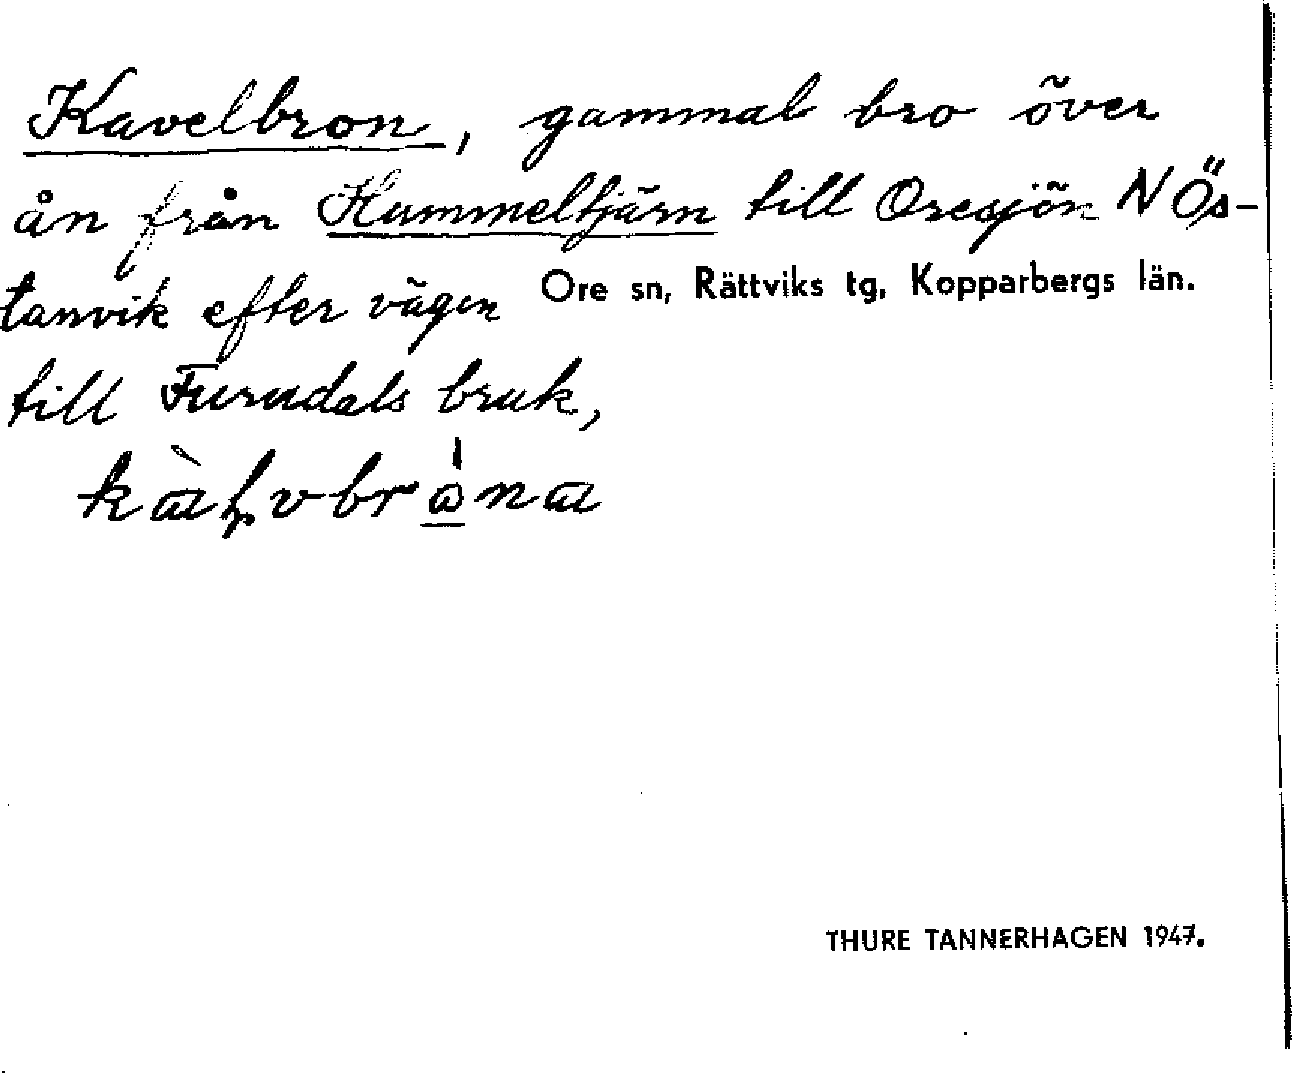 Kavelbron, gammal bro över
ån från Hummeltjärn till Oresjön N Ös-
tanvik efter vägen
Ore sn, Rättviks tg, Kopparbergs län.
till Furudals bruk,
THURE TANNERHAGEN 1947.